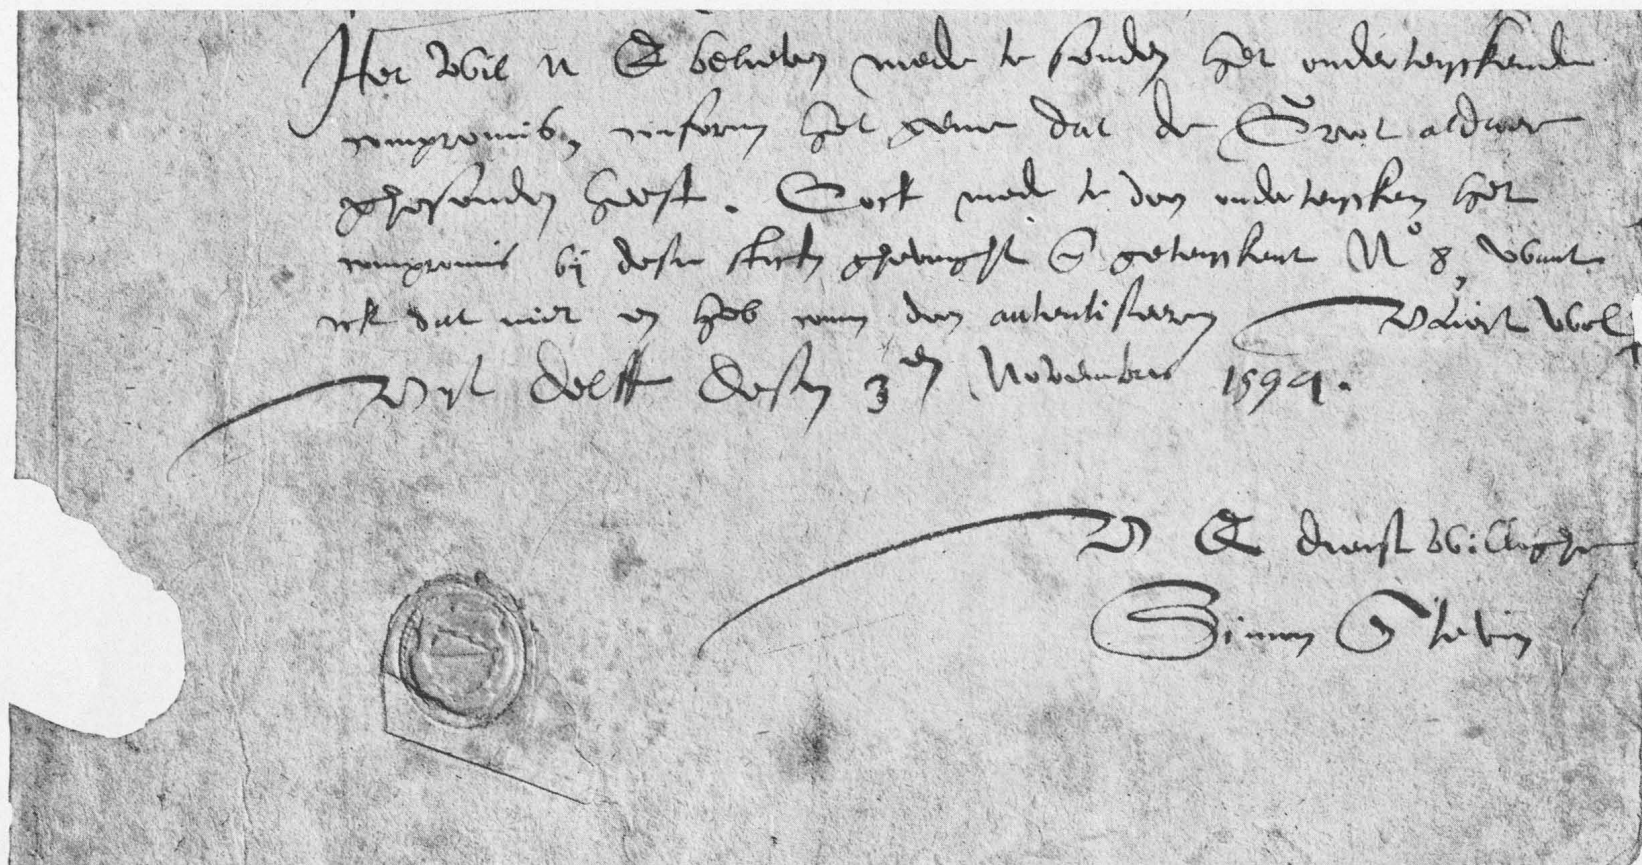 Het wil u E believen mede te senden het onderteyckende
compromis, conform het gene dat de Groot aldaer
ghesonden heeft. Oock mede te doen onderteycken het
compromis bij dese stucken ghevought en geteyckent No 8, want
ick dat niet en heb connen doen autentiseren Vaert wel
Uyt Delft desen 3en November 1594.
U E dienstwillighe
Simon Stevin